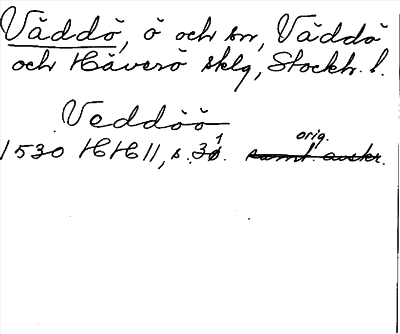 Väddö, ö och sn, Väddö
och Häverö sklg, Stockh. l.
Veddöö
1530 HH 11, s. 31. orig.
samt avskr.